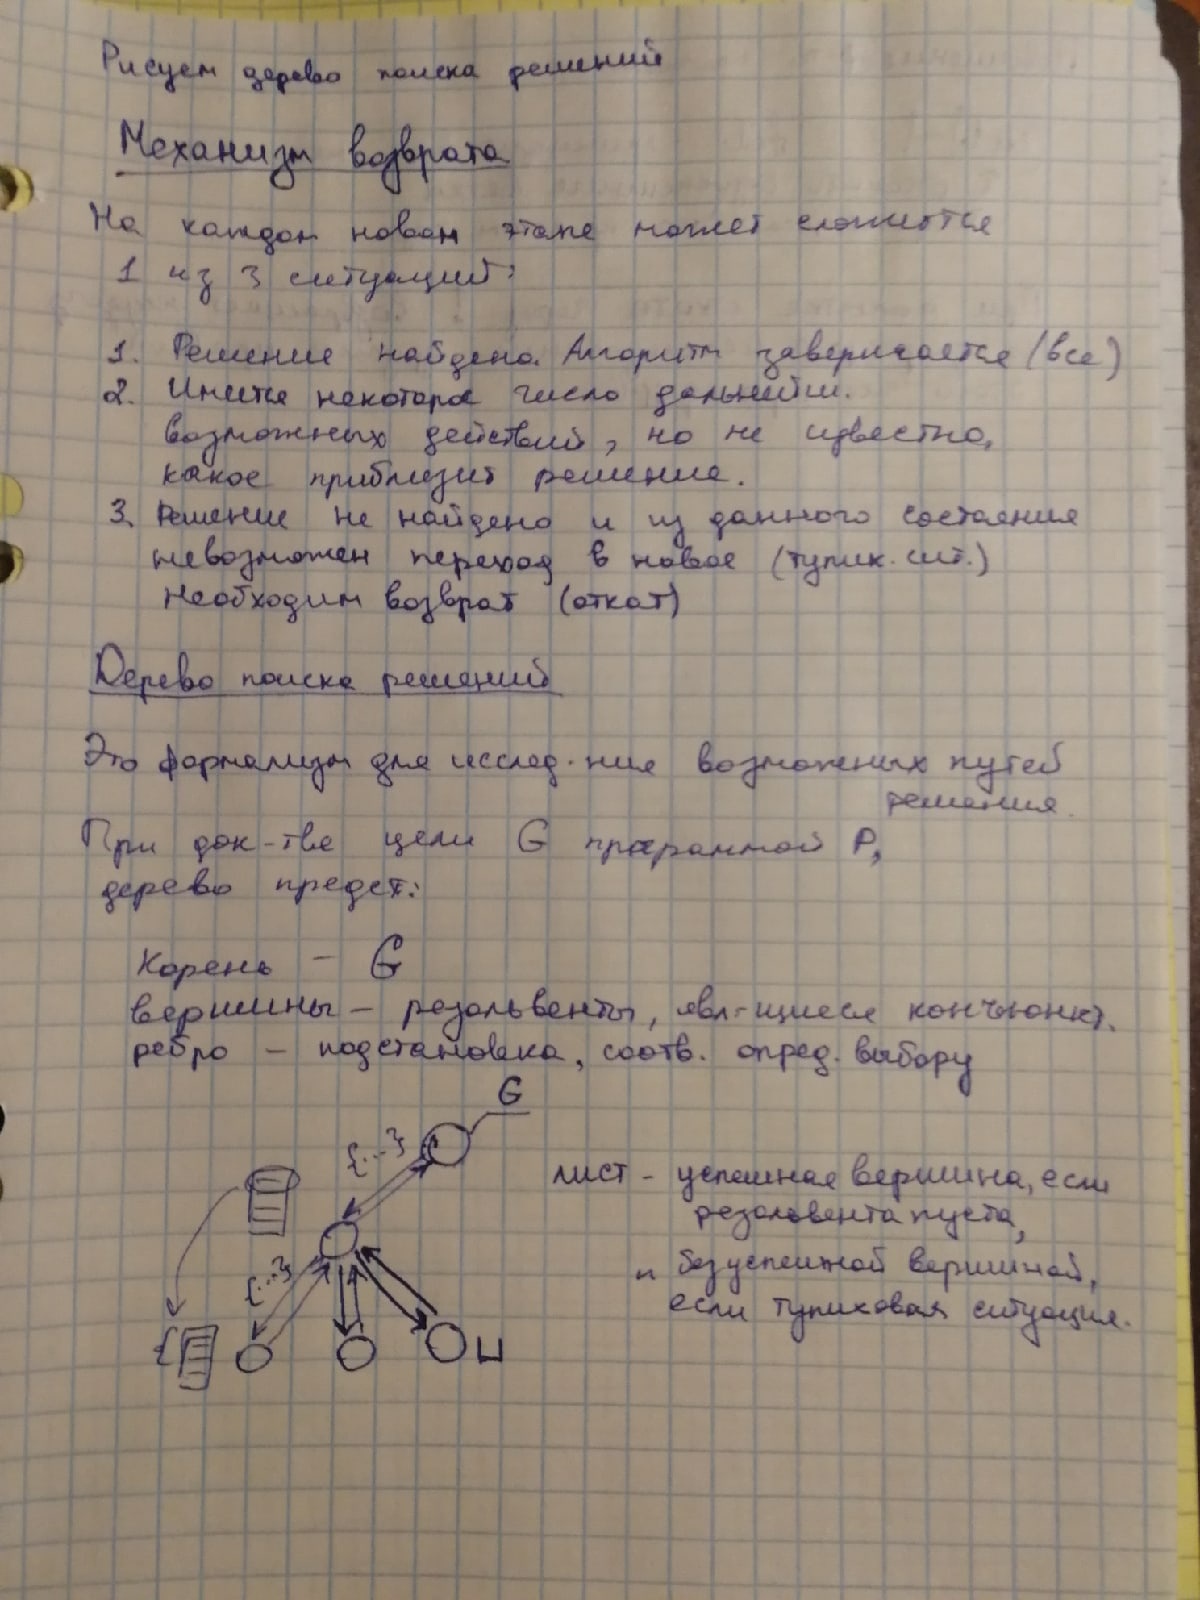 Рисуем дерево поиска решений
Механизм возврата
На каждом новом этапе может сложиться
1 из 3 ситуаций:
1. Решение найдено. Алгоритм завершается (все)
2. Имеется некоторое число дальнейш.
возможных действий, но не известно,
какое приблизит решение.
3. Решение не найдено и из данного состояния
невозможен переход в новое (тупик. сит.)
Необходим возврат (откат)
Дерево поиска решений
Это формализм для исслед-ния возможных путей
решения.
При док-тве цели G программой P,
дерево предст:
Корень – G
вершины – резольвенты, явл-щиеся конъюнкт.
ребро – подстановка, соотв. опред. выбору
G
{...}
лист – успешная вершина, если
резольвента пуста,
{...}
безуспешной вершиной,
если тупиковая ситуация.